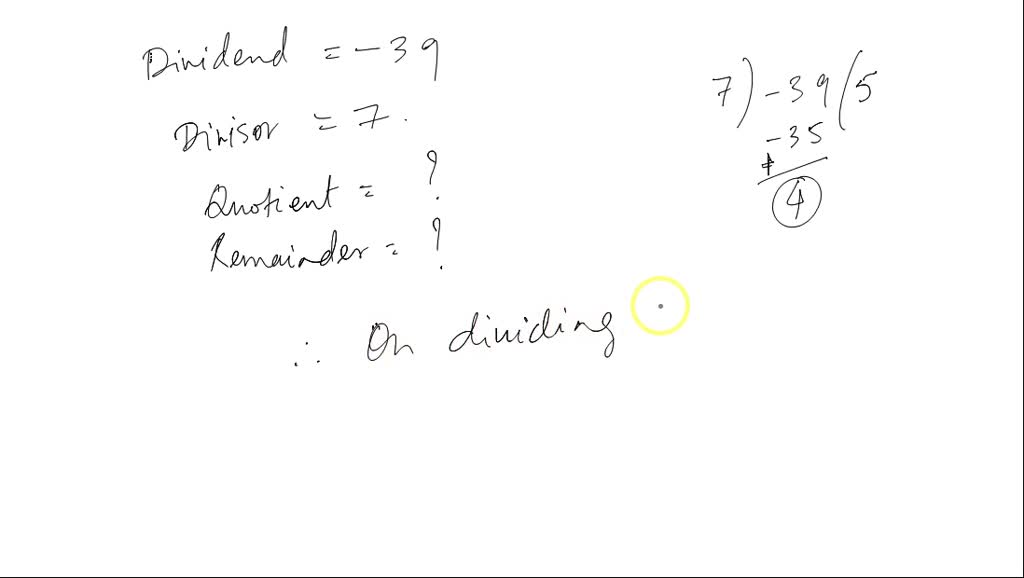 Dividend = -39
Divisor = 7.
Quotient = ?
Remainder = ?
7) -39 (5
-35
+
4
∴ On dividing